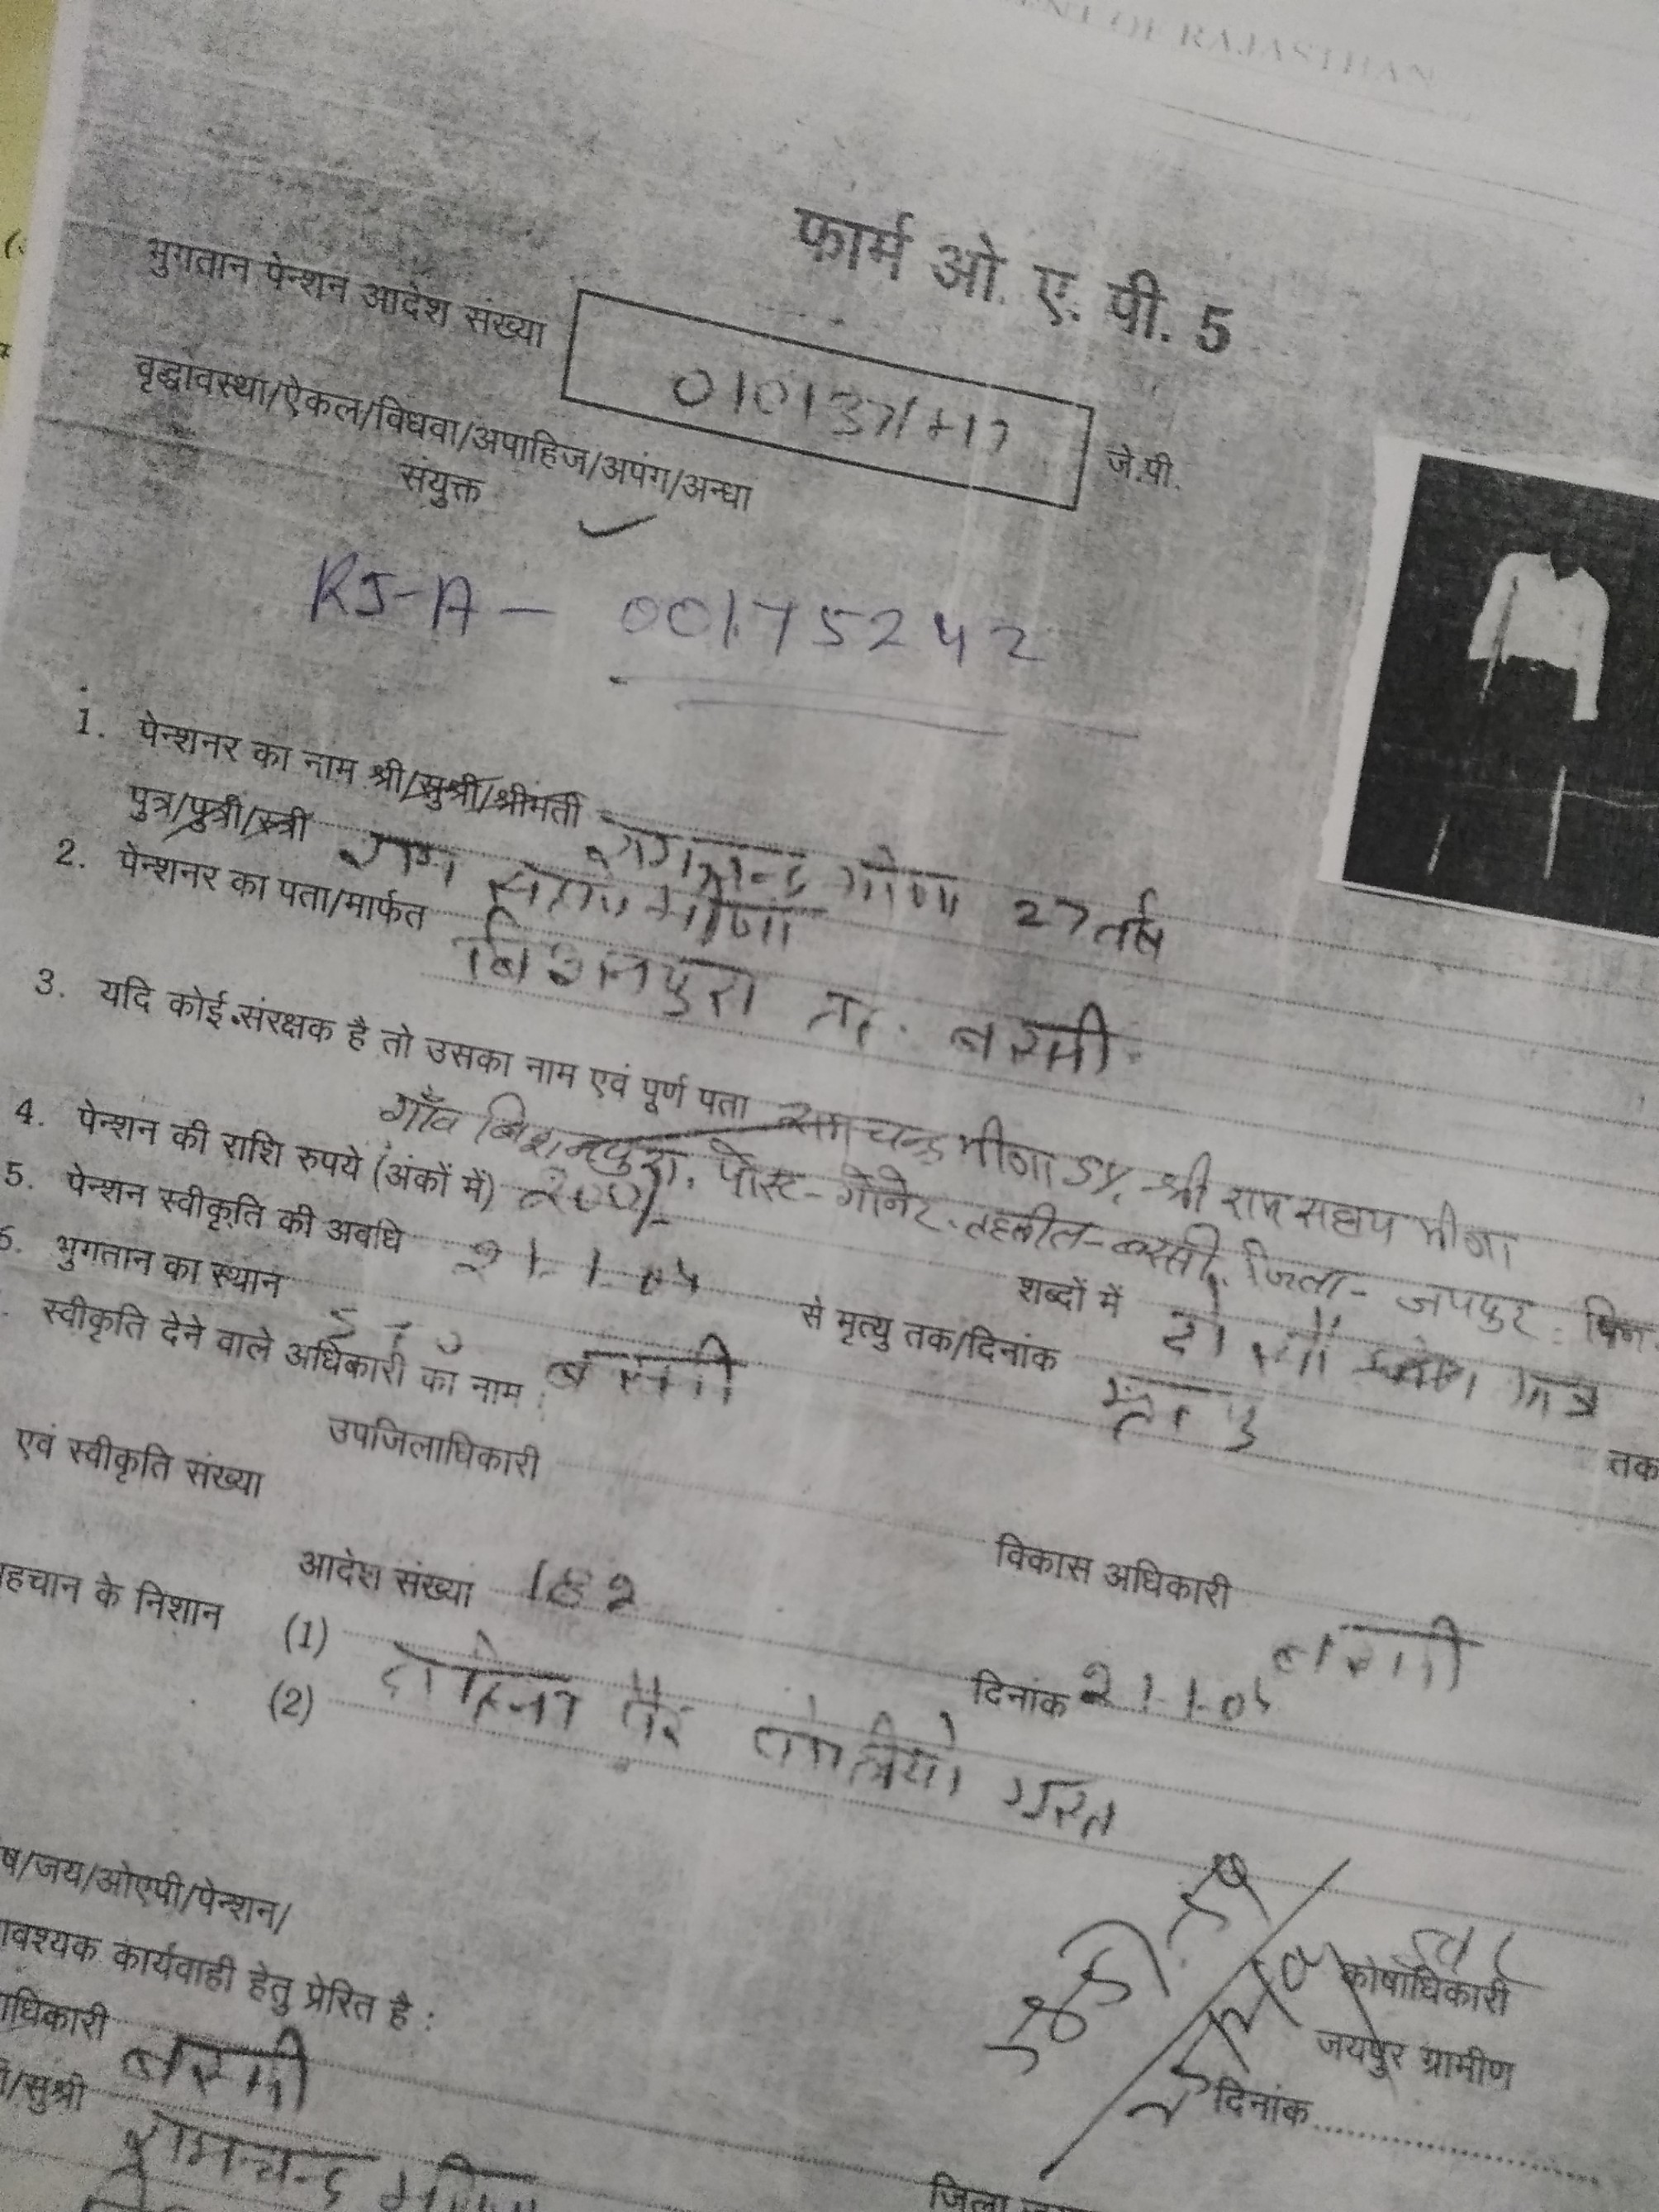 OF RAJASTHAN
फार्म ओ. ए. पी. 5
भुगतान पेन्शन आदेश संख्या
जे.पी.
वृद्धावस्था/ऐकल/विधवा/अपाहिज/अपंग/अन्धा
संयुक्त
RJ-A - 00175242
1. पेन्शनर का नाम श्री/सुश्री/श्रीमती रामचन्द्र मीणा 27 वर्ष
पुत्र/पुत्री/स्त्री राम सहाय मीणा
2. पेन्शनर का पता/मार्फत बिशनपुरा त. बस्सी
3. यदि कोई संरक्षक है तो उसका नाम एवं पूर्ण पता रामचन्द्र मीना S/. श्री राम सहाय मीना
गाँव बिशनपुरा, पोस्ट - गोनेर, तहसील - बस्सी, जिला - जयपुर
4. पेन्शन की राशि रुपये (अंकों में) 200/- शब्दों में दो सौ मात्र
5. पेन्शन स्वीकृति की अवधि 21-1-05 से मृत्यु तक/दिनांक तक
6. भुगतान का स्थान बस्सी
स्वीकृति देने वाले अधिकारी का नाम :
उपजिलाधिकारी विकास अधिकारी बस्सी
एवं स्वीकृति संख्या
आदेश संख्या 182 दिनांक 21-1-05
हचान के निशान (1) पैर
(2)
ष/जय/ओएपी/पेन्शन/
वश्यक कार्यवाही हेतु प्रेरित है :
कोषाधिकारी
जयपुर ग्रामीण
दिनांक
ाधिकारी बस्सी
/सुश्री रामचन्द्र मीणा
जिला